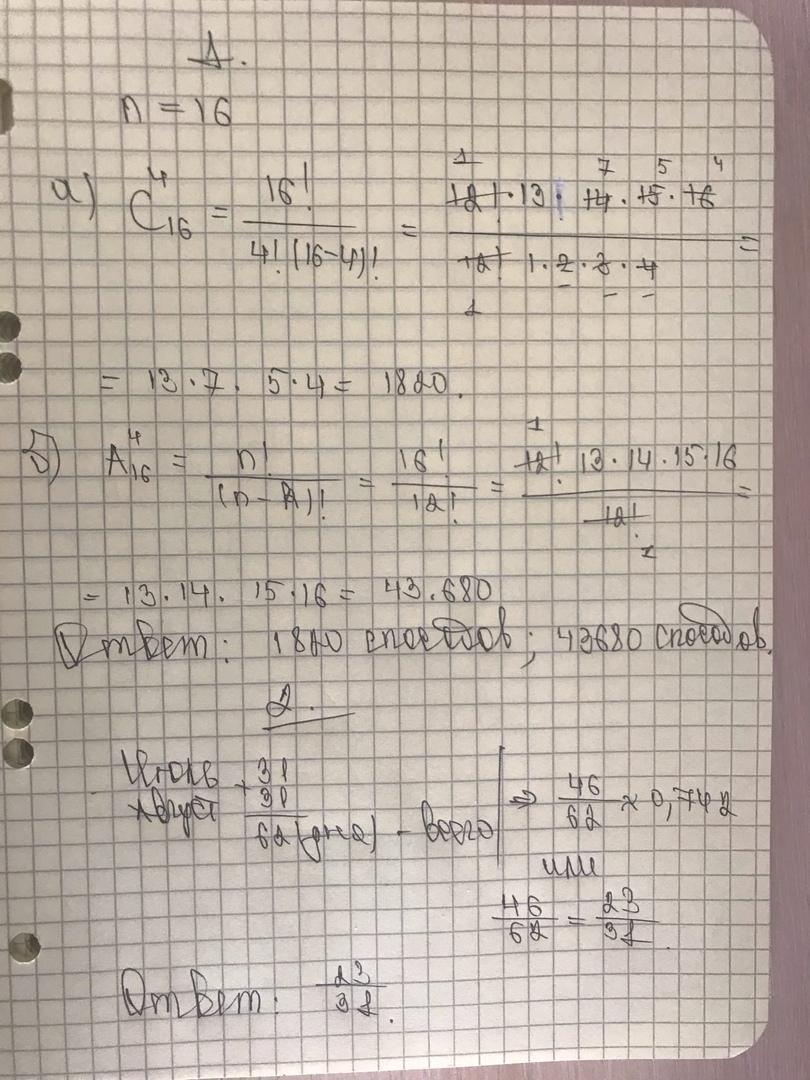 1.
n = 16
а) C₁₆⁴ = 16! / 4!(16-4)! = 12! · 13 · 14 · 15 · 16 / 12! 1 · 2 · 3 · 4 =
= 13 · 7 · 5 · 4 = 1820.
б) A₁₆⁴ = n! / (n - k)! = 16! / 12! = 12! · 13 · 14 · 15 · 16 / 12! =
= 13 · 14 · 15 · 16 = 43.680
Ответ: 1820 способов; 43680 способов.
2.
Июль + 31
Август 31
62 (дня) - всего
⇒ 46/62 ≈ 0,742
или
46/62 = 23/31.
Ответ: 23/31.